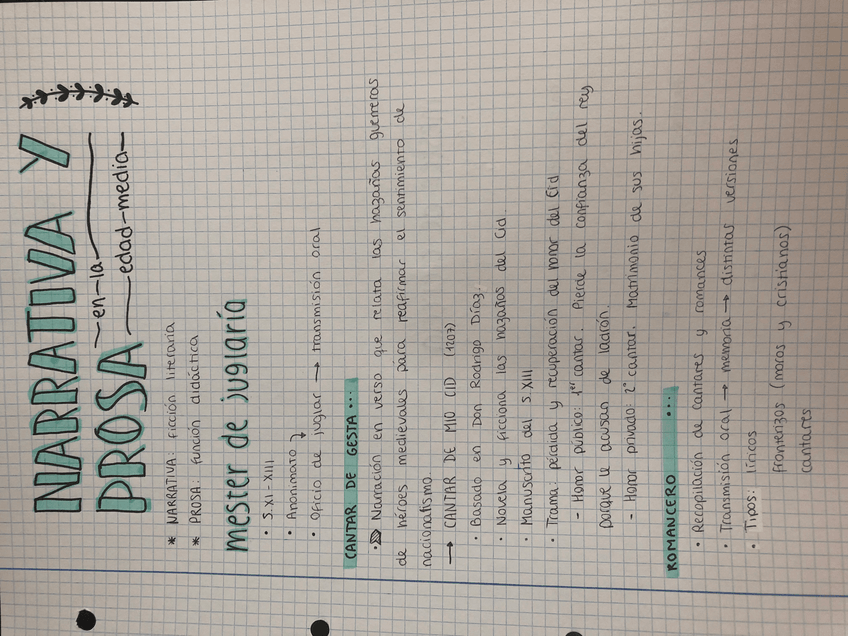 NARRATIVA Y
PROSA en la edad-media
* NARRATIVA: ficción literaria
* PROSA: función didáctica
mester de juglaría
· S.XI - XIII
· Anonimato
· Oficio de juglar → transmisión oral
CANTAR DE GESTA ...
· Narración en verso que relata las hazañas guerreras
de héroes medievales para reafirmar el sentimiento de
nacionalismo.
→ CANTAR DE MIO CID (1207)
· Basado en Don Rodrigo Díaz.
· Novela y ficciona las hazañas del Cid.
· Manuscrito del S.XIII
· Trama: pérdida y recuperación del honor del Cid
- Honor público: 1er cantar. Pierde la confianza del rey
porque le acusan de ladrón.
- Honor privado: 2º cantar. Matrimonio de sus hijas.
ROMANCERO ...
· Recopilación de cantares y romances
· Transmisión oral → memoria → distintas versiones
· Tipos: líricos
fronterizos (moros y cristianos)
cantares